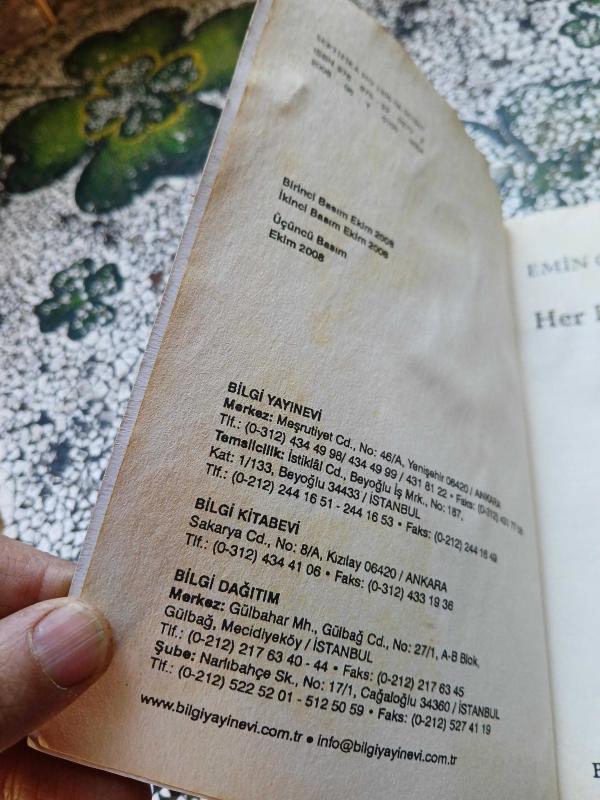 Birinci Basım Ekim 2008
İkinci Basım Ekim 2008
Üçüncü Basım
Ekim 2008
BİLGİ YAYINEVİ
Merkez: Meşrutiyet Cd., No: 46/A, Yenişehir 06420 / ANKARA
Tlf.: (0-312) 434 49 98/ 434 49 99 / 431 81 22 • Faks: (0-312) 431 77 58
Temsilcilik: İstiklâl Cd., Beyoğlu İş Mrk., No: 187,
Kat: 1/133, Beyoğlu 34433 / İSTANBUL
Tlf.: (0-212) 244 16 51 - 244 16 53 • Faks: (0-212) 244 16 49
BİLGİ KİTABEVİ
Sakarya Cd., No: 8/A, Kızılay 06420 / ANKARA
Tlf.: (0-312) 434 41 06 • Faks: (0-312) 433 19 36
BİLGİ DAĞITIM
Merkez: Gülbahar Mh., Gülbağ Cd., No: 27/1, A-B Blok,
Gülbağ, Mecidiyeköy / İSTANBUL
Tlf.: (0-212) 217 63 40 - 44 • Faks: (0-212) 217 63 45
Şube: Narlıbahçe Sk., No: 17/1, Cağaloğlu 34360 / İSTANBUL
Tlf.: (0-212) 522 52 01 - 512 50 59 • Faks: (0-212) 527 41 19
www.bilgiyayinevi.com.tr • info@bilgiyayinevi.com.tr
EMİN
Her